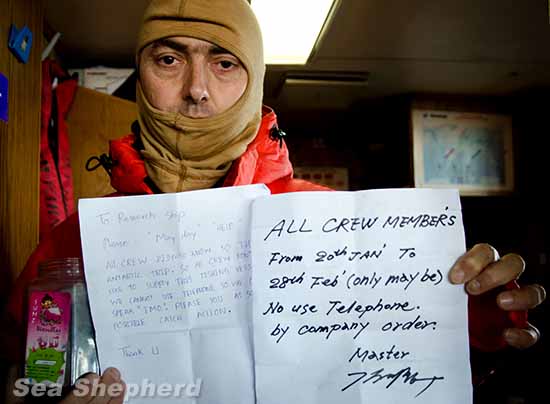 To Research Ship
Name "May day" "HELP"
ALL CREW DIDNOT KNOW TO THE
ANTARTIC TRIP. SO MY CREW DON'T
LIKE TO SUPPLY THIS FISHING
WE CANNOT USE TELEPHONE TO
SPEAK "IMO". PLEASE YOU AS
POSSIBLE CATCH ACTION.
Thank U
ALL CREW MEMBER'S
From 20th JAN' To
28th Feb' (only may be)
No use Telephone.
by company order.
Master
Sea Shepherd